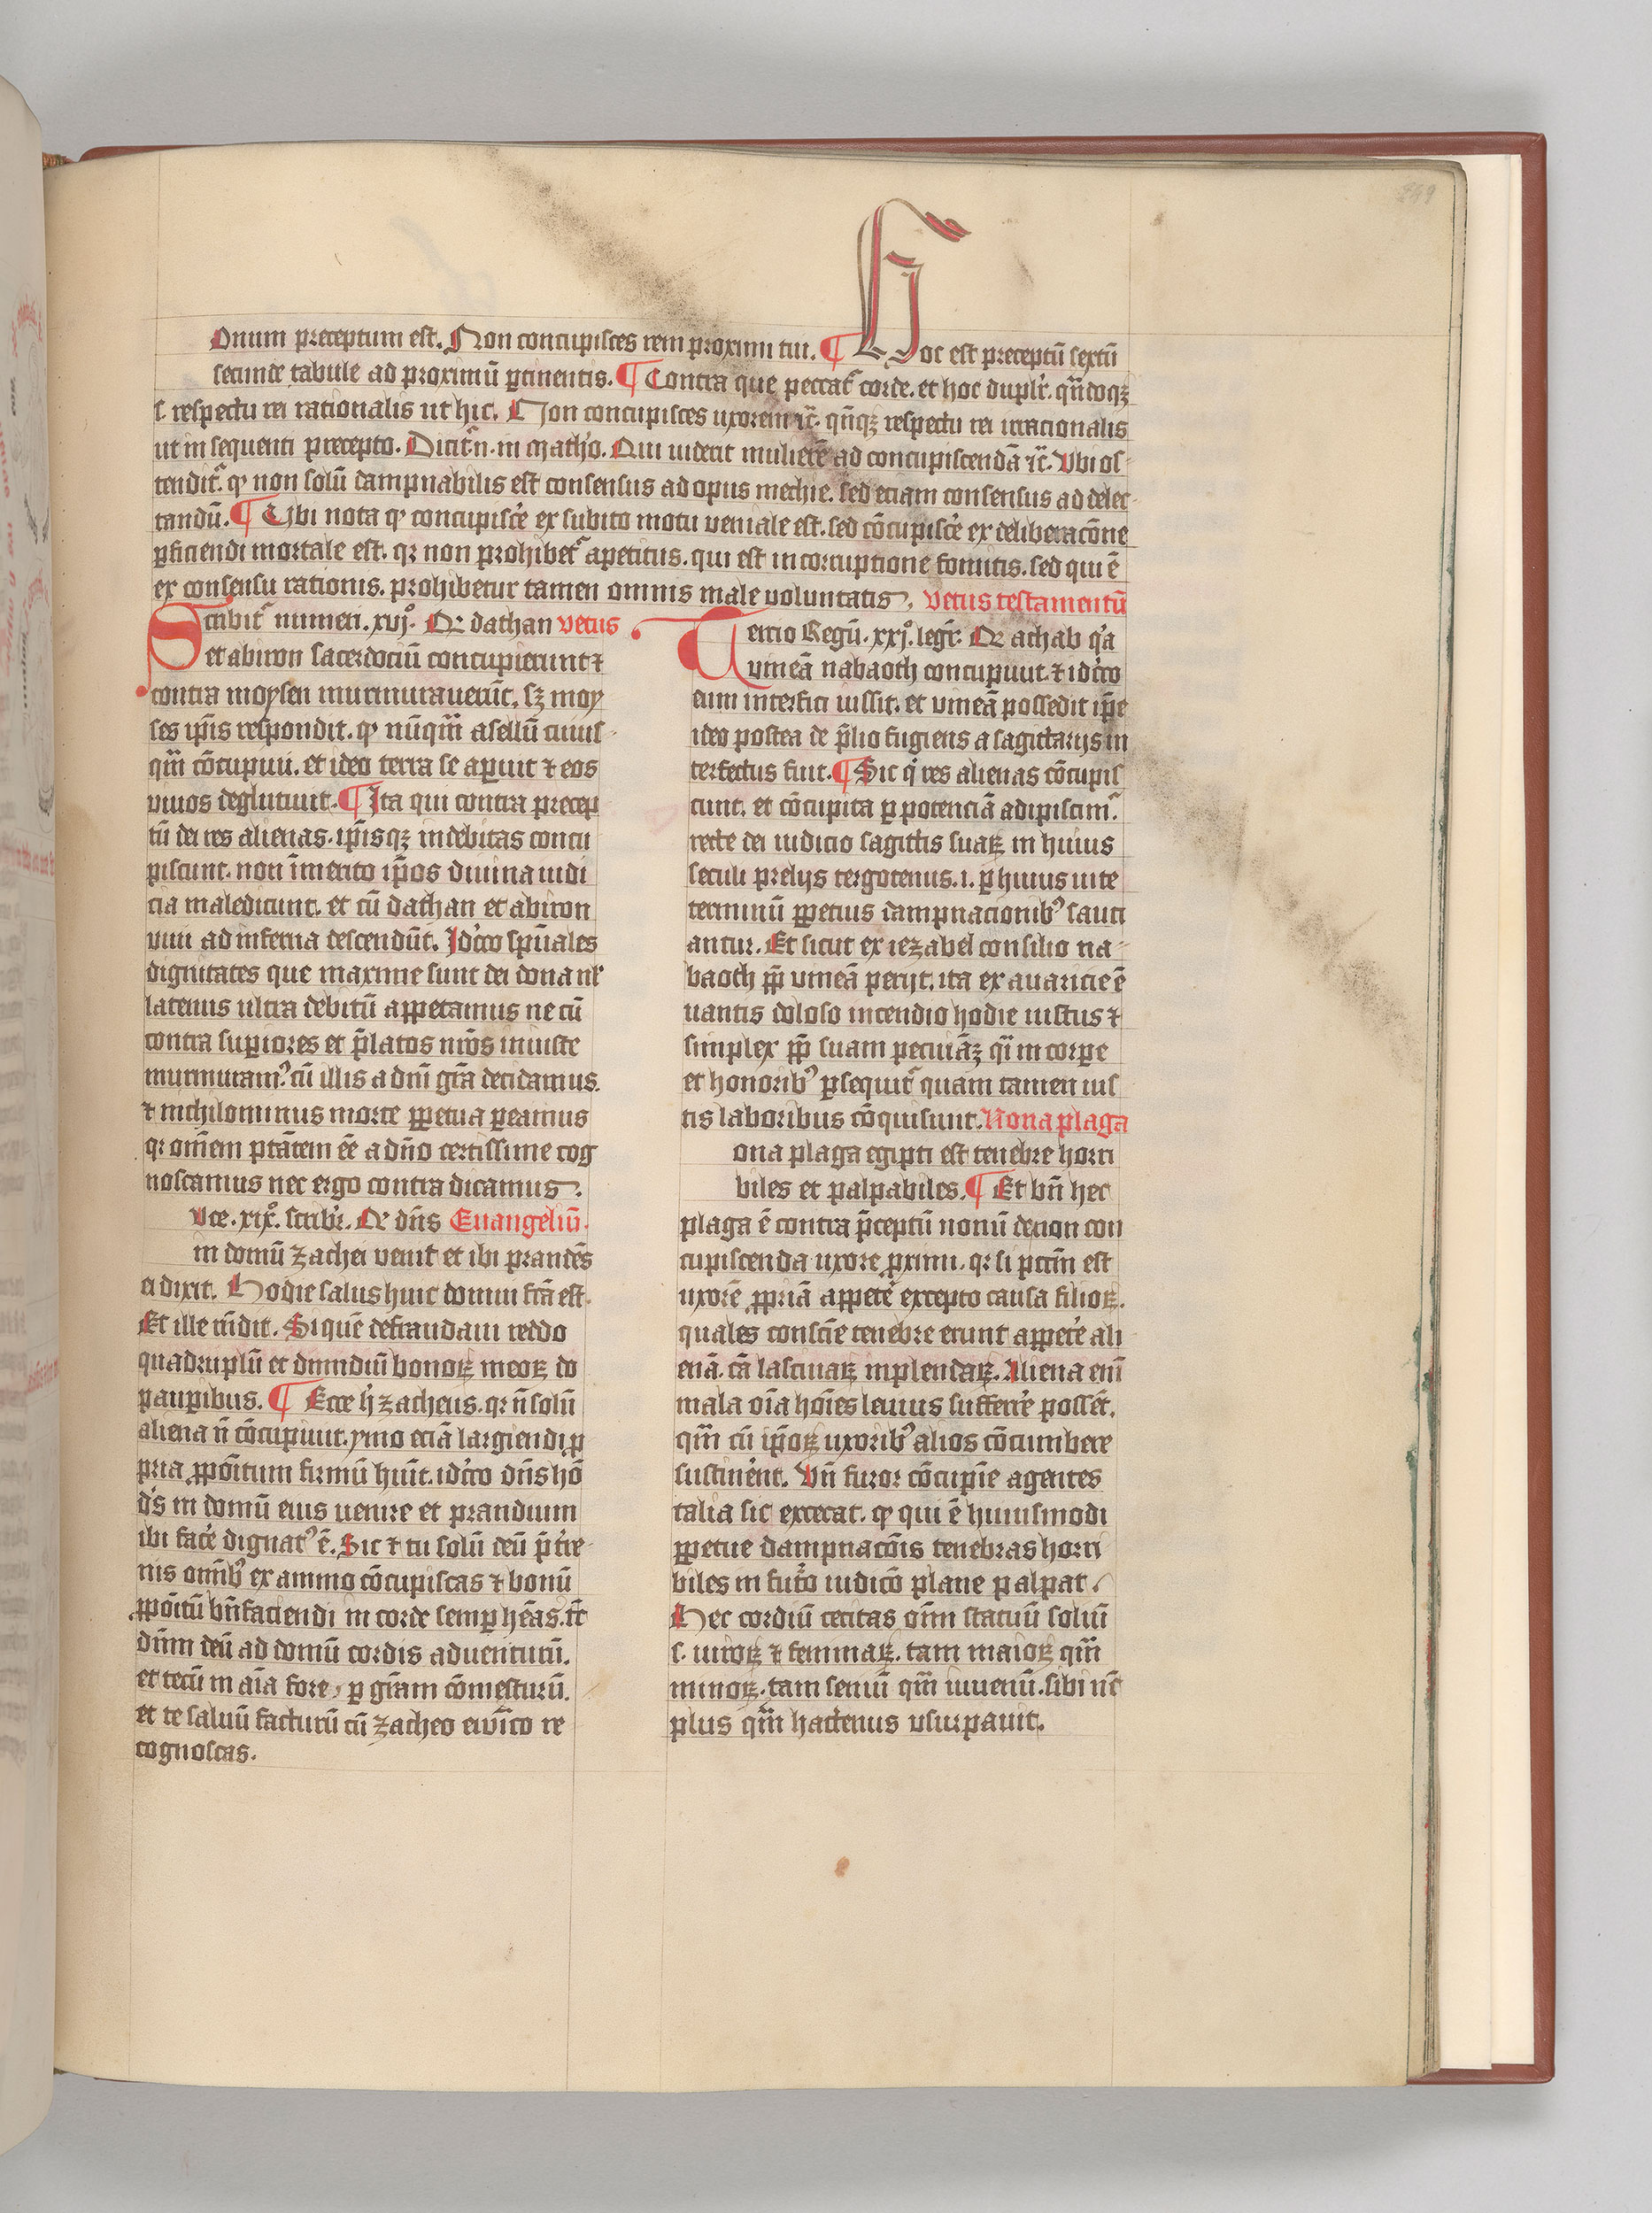 onum preceptum est. Non concupisces rem proximi tui. ¶ Hoc est preceptū sextū
secunde tabule ad proximū ꝑtinentis. ¶ Contra que peccat᷑ corde. et hoc duplr̄. qn̄doqꝫ
s. respectu rei rationalis ut hic. Non concupisces uxorem ⁊c̄. qn̄qꝫ respectu rei irracionalis
ut in sequenti precepto. Dicit᷑.n. in math̓o. Qui uiderit mulierē ad concupiscendā ⁊c̄. Vbi os-
tendit᷑. ꝙ non solū dampnabilis est consensus ad opus mechie. sed eciam consensus ad delec-
tandū. ¶ Vbi nota ꝙ concupisc̓e ex subito motu veniale est. sed cōcupisc̓e ex deliberacōne
ꝑficiendi mortale est. qꝛ non prohibet᷑ apetitus. qui est in corruptione fomitis. sed qui ē
ex consensu rationis. prohibetur tamen omnis male voluntatis. Vetus testamentū
Scribit᷑ numeri. xvjº. Qꝛ dathan vetus
et abiron sacerdociū concupierunt ⁊
contra moysen murmurauerūt. sꝫ moy
ses ip̄is respondit. ꝙ nūqm̄ asellū cuius-
qm̄ cōcupiui. et ideo terra se aperuit ⁊ eos
viuos deglutiuit. ¶ Ita qui contra precep
tū dei res alienas. ip̄isqꝫ indebitas concu
piscunt. non īmerito ip̄os diuina iudi
cia maledicunt. et cū dathan et abiron
viui ad inferna descendūt. Id̓cco sp̄uales
dignitates que maxime sunt dei dona nl̓
latenus ultra debitū appetamus ne cū
contra suꝑiores et p̄latos nr̄os iniuste
murmuram᷒. cū illis a dn̄i gr̄a decidamus.
⁊ nichilominus morte ꝑpetua ꝑeamus
qꝛ om̄em ptātem eē a dn̄o certissime cog
noscamus nec ergo contra dicamus.
uce. xixº. scribr̄. Qꝛ dn̄s Euangeliū.
in domū zachei venit et ibi prandēs
ei dixit. Hodie salus huic domui fc̄a est.
Et ille rn̄dit. Si quē defraudaui reddo
quadruplū et dimidiū bonoꝝ meoꝝ do
pauꝑibus. ¶ Ecce h̓ zacheus. qꝛ n̄ solū
aliena n̄ cōcupiuit. ymo eciā largiendi ꝓ
pria ꝓpoītum firmū hūit. id̓cco dn̄s hō
d̓s in domū eius venire et prandium
ibi fac̓e dignat᷒ ē. Sic ⁊ tu solū deū p̄ t̓re-
nis om̄ib᷒ ex animo cōcupiscas ⁊ bonū
ꝓpoītū bn̄faciendi in corde semꝑ hēas. n̄c
dn̄m deū ad domū cordis aduenturū.
et tecū in aīa fore, ꝑ gr̄am cōmesturū.
et te saluū facturū cū zacheo ewīco re
cognoscas.
Tercio Regū. xxjº. legr̄. Qꝛ achab q̓a
vineā nabaoth concupiuit ⁊ id̓cco
eum interfici iussit. et vineā possedit ip̄e
ideo postea de p̄lio fugiens a sagittarijs in
terfectus fuit. ¶ Sic q̓ res alienas cōcupis
cunt. et cōcupita ꝑ potenciā adipiscunt᷑.
recte dei iudicio sagittis suaꝝ in huius
seculi prelijs tergotenus. i. ꝑ huius uite
terminū ꝑpetuis dampnacionib᷒ sauci
antur. Et sicut ex iezabel consilio na-
baoth ꝓp̄ vineā perijt. ita ex auaricie ē
uantis doloso incendio hodie iustus ⁊
simplex ꝓp̄ suam pecuniāꝫ qn̄ in corꝑe
et honorib᷒ ꝑsequit᷑ quam tamen ius
tis laboribus cōquisiunt. Nona plaga
ona plaga egipti est tenebre horri
biles et palpabiles. ¶ Et bn̄ hec
plaga ē contra p̄ceptū nonū de non con
cupiscenda uxore ꝓximi. qꝛ si pctm̄ est
uxorē ꝓpriā appet̓e excepto causa filioꝝ.
quales consciē tenebre erunt appet̓e ali
enā. cā lasciuiaꝝ inplendaꝝ. Aliena eni᷑
mala oīa hoīes leuius suffer̓re possēt.
qm̄ cū ip̄oꝝ uxorib᷒ alios cōcumbere
sustin̓ent. Vn̄ furor cōcupīe agentes
talia sic excecat. ꝙ qui ē huiusmodi
ꝑpetue dampnacōis tenebras horri
biles in fut᷑o iudicō plane palpat.
Hec cordiū cecitas om̄ statuū soliū
s. uiroꝝ ⁊ feminaꝝ. tam maioꝝ qm̄
minoꝝ. tam senū qm̄ iuuenū. sibi n̄c
plus qm̄ hactenus vsurpauit.